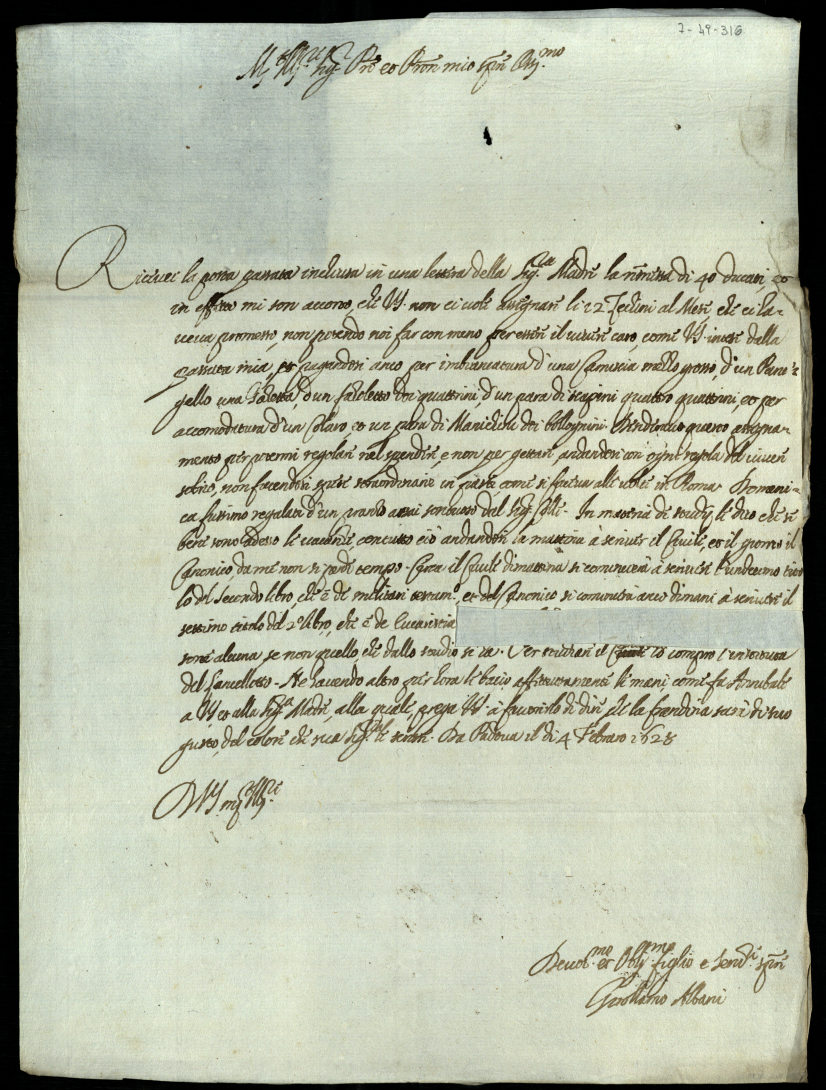 7-49-316
M.to Ill.re Sig.r Pre et Pron mio sempre Oss.mo
Ricevei la posta passata inclusa in una lettera della Sig.ra Madre la rimessa di 40 ducati, et
in effetto mi son accorto, che VS. non ci vuole assignare li 12 Zechini al Mese, che ci ha-
veva promesso, non potendo noi far con meno per essere il vivere caro, come VS. intese dalla
passata mia, et pagandosi anco per imbiancatura d'una Camiscia mezzo grosso, d'un
una d'un fazoletto doi quattrini d'un para di scapini quattro quattrini, et per
accomodatura d'un Colaro et un para di Manichini doi bollognini. questo assigna-
mento per potersi regolare nel spendere, e non per gettare, andandosi con ogni regola del vivere
sobrio, non facendosi spese straordinarie in parte come si faceva alle volte in Roma. Domeni-
ca fussimo regalati d'un assai del Sig.r In materia di studij li dico che se
bene sono adesso le vacanze, con tutto ciò andandosi la mattina à sentire il Civile, et il giorno il
Canonico, da me non si perde tempo. Circa il Civile dimattina si comincierà à sentire l'undecimo tito-
lo del secondo libro, che è de militari testam. et del Canonico si comincia anco dimani à sentire il
settimo titolo del 2º libro, che è de
sorte alcuna, se non quello, che dallo studio si ha. Per studiare il io compro l'
del Lancellotto. Ne havendo altro per hora le bacio affettuosamente le mani come fa Annibale
a VS et alla Sig.ra Madre, alla quale prega VS. à favorirlo di dire che la sarà di suo
gusto, del colore che sua Sig.ria le scrive. Da Padova il di 4 Febraro 1628
D VS. m.to Ill.re
Devot.mo et Oblig.mo figlio e Serv.re sempre
Girolamo Albani